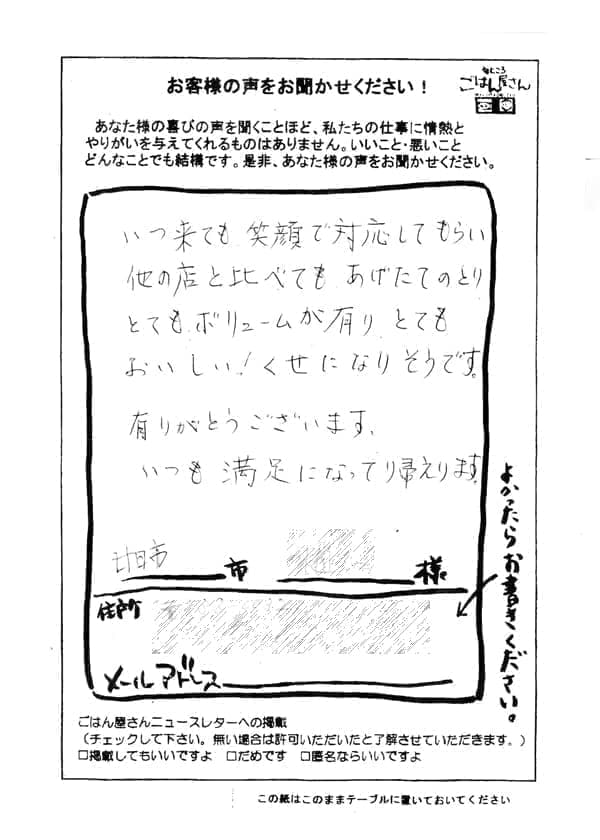 お客様の声をお聞かせください！
ごはん屋さん
あなた様の喜びの声を聞くことほど、私たちの仕事に情熱と
やりがいを与えてくれるものはありません。いいこと・悪いこと
どんなことでも結構です。是非、あなた様の声をお聞かせください。
いつ来ても 笑顔で対応してもらい
他の店と比べても あげたてのとり
とてもボリュームが有り とても
おいしい！くせになりそうです。
有りがとうございます、
いつも 満足になってり帰えります。
廿日市 市 様
住所
メールアドレス
よかったらお書きください。
ごはん屋さんニュースレターへの掲載
（チェックして下さい。無い場合は許可いただいたと了解させていただきます。）
□掲載してもいいですよ □だめです □匿名ならいいですよ
この紙はこのままテーブルに置いておいてください